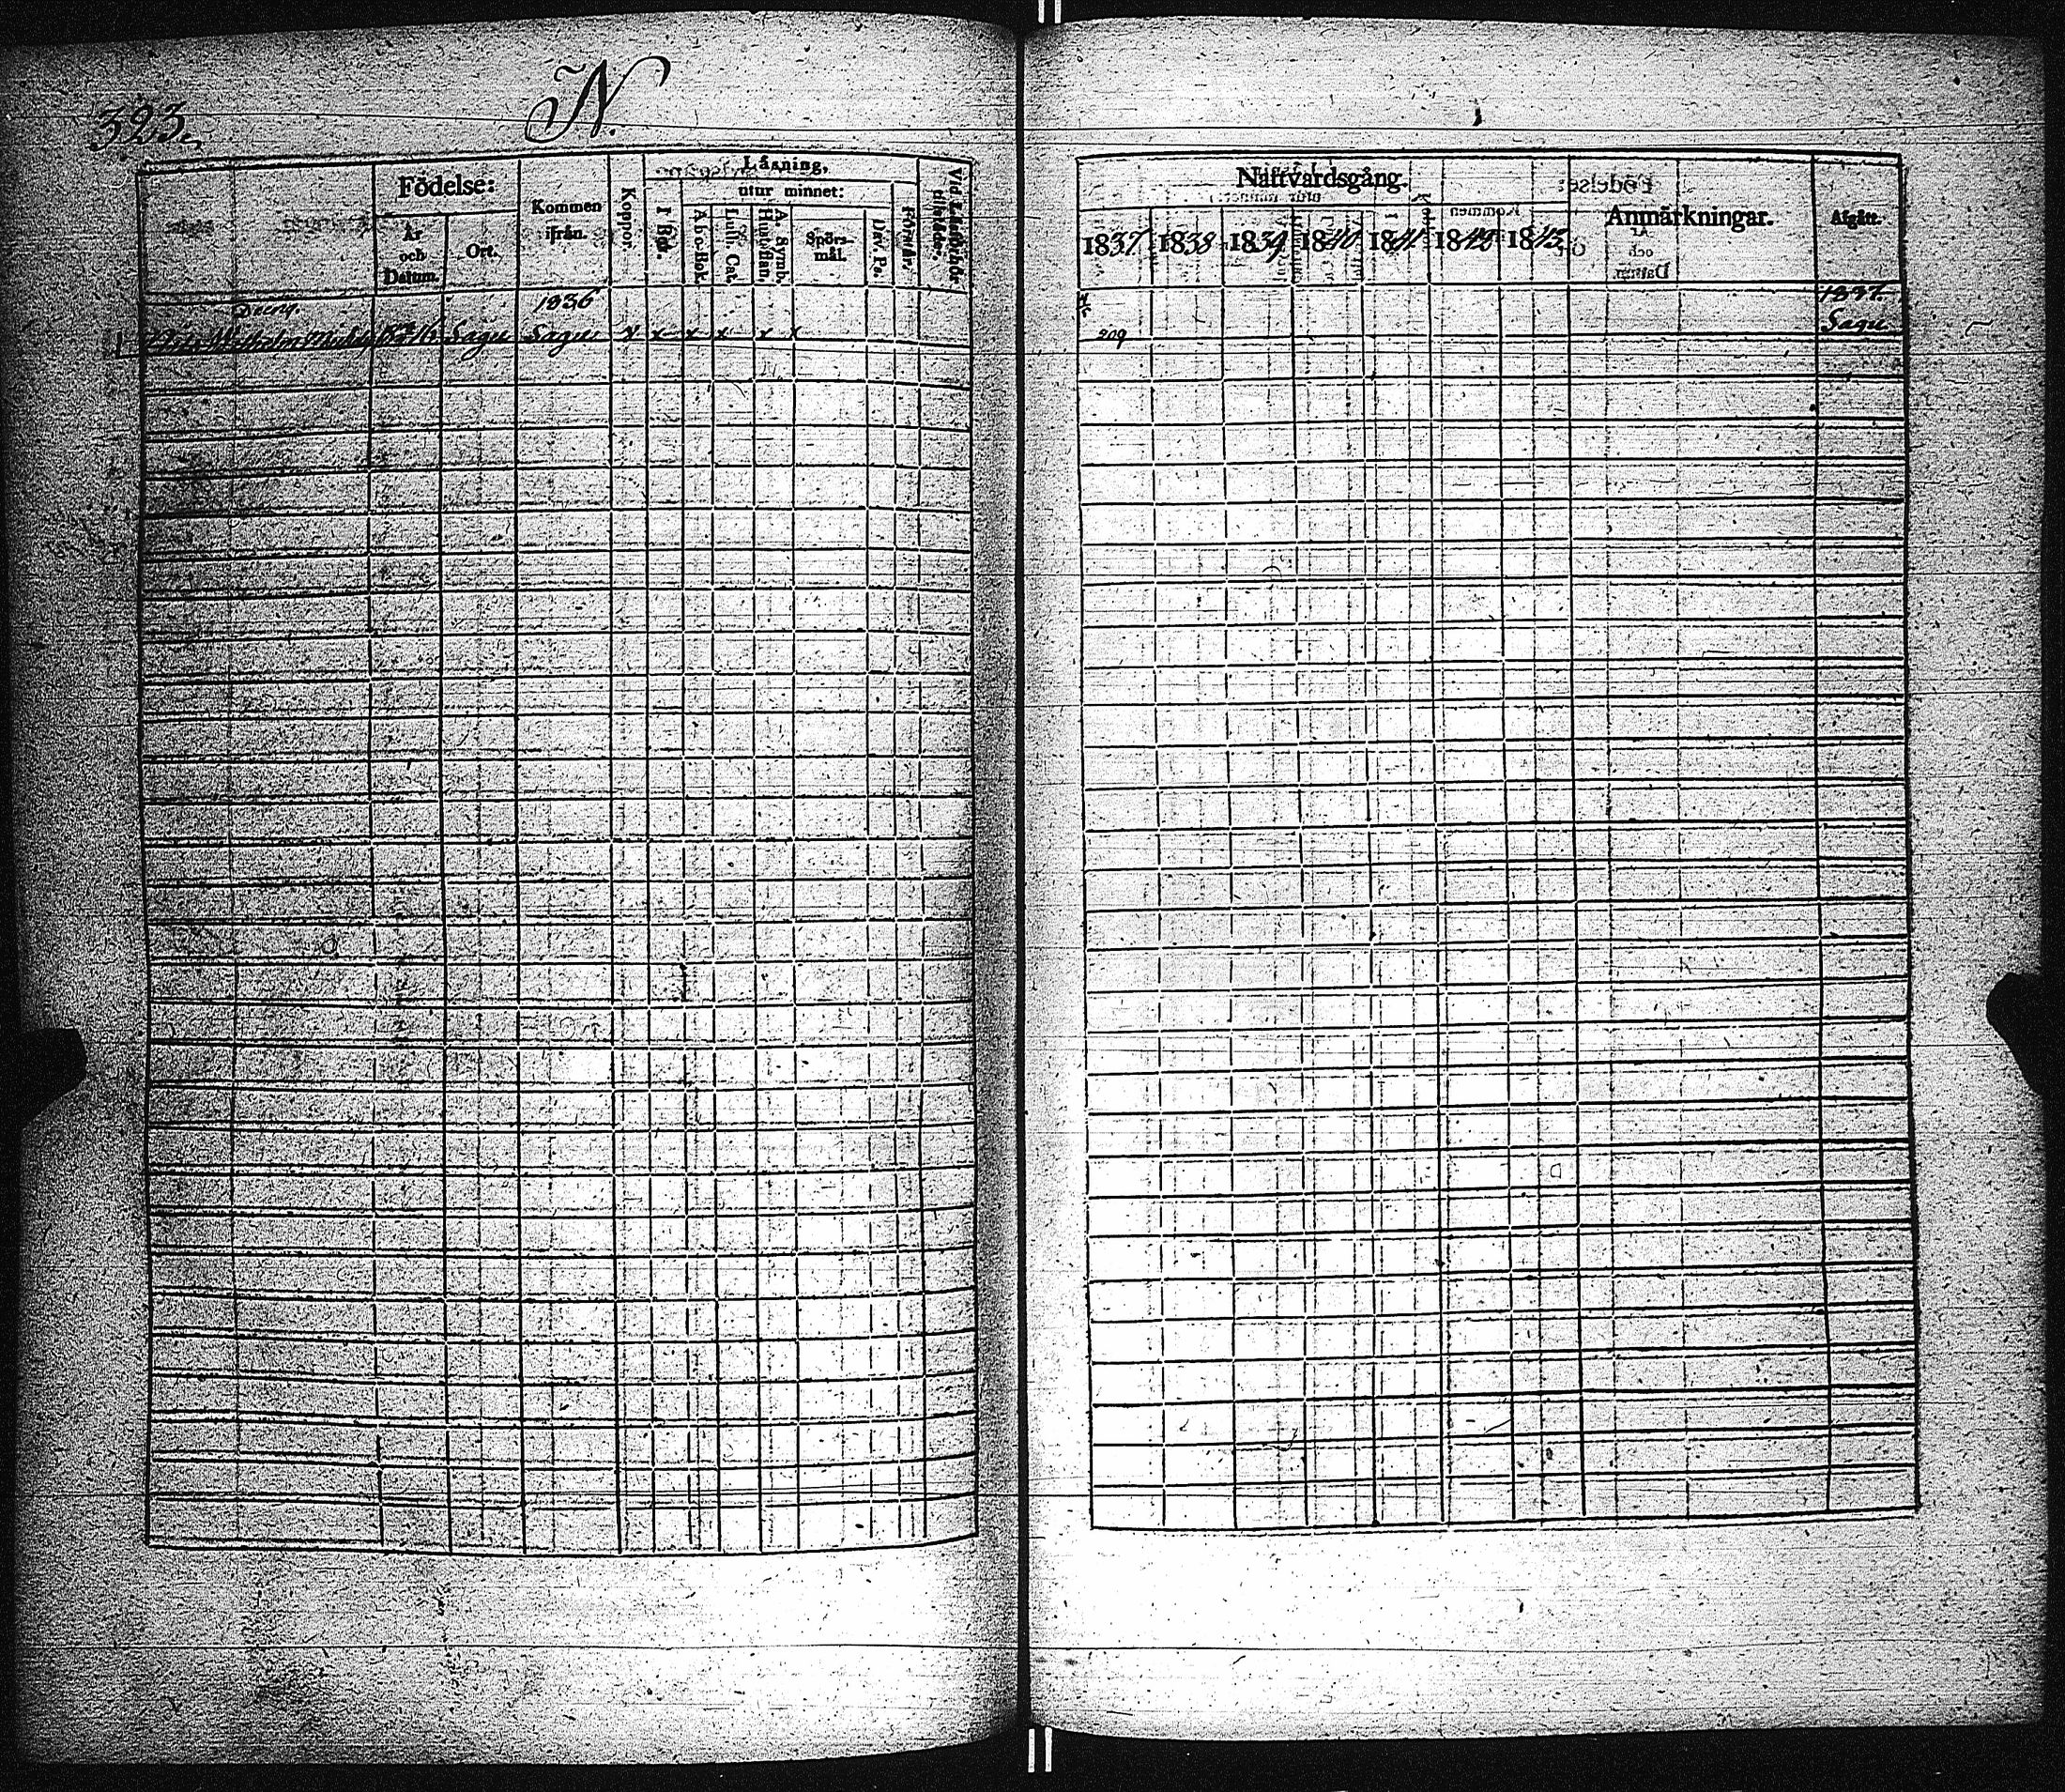 323.
N.
Födelse:
År och Datum.
Ort.
Kommen ifrån.
Koppor.
Läsning,
I Bok.
utur minnet:
A b c-Bok.
Luth. Cat.
A. Symb. Hustaflan.
Spörs-mål.
Dav. Ps.
Förstår.
Vid Läsförhör tillstädes.
1836
Wilhelm Sagu Sagu x x x x x x
Nattvardsgång.
1837 1838 1839 1840 1841 1842 1843
Anmärkningar.
Afgått.
1837.
Sagu
209